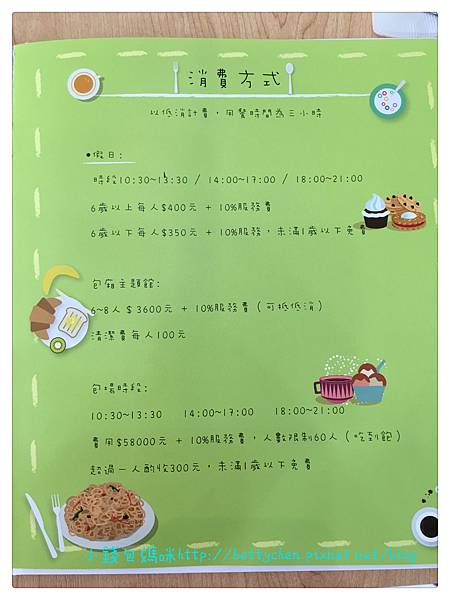 消費方式
以低消計費，用餐時間為三小時
●假日：
時段10:30~13:30 / 14:00~17:00 / 18:00~21:00
6歲以上每人$400元 + 10%服務費
6歲以下每人$350元 + 10%服務費，未滿1歲以下免費
包廂主題館：
6~8人 $ 3600元 + 10%服務費（可抵低消）
清潔費每人100元
包場時段：
10:30~13:30 14:00~17:00 18:00~21:00
費用$58000元 + 10%服務費，人數限制60人（吃到飽）
超過一人酌收300元，未滿1歲以下免費
小錢包媽咪http://bettychen.pixnet.net/blog